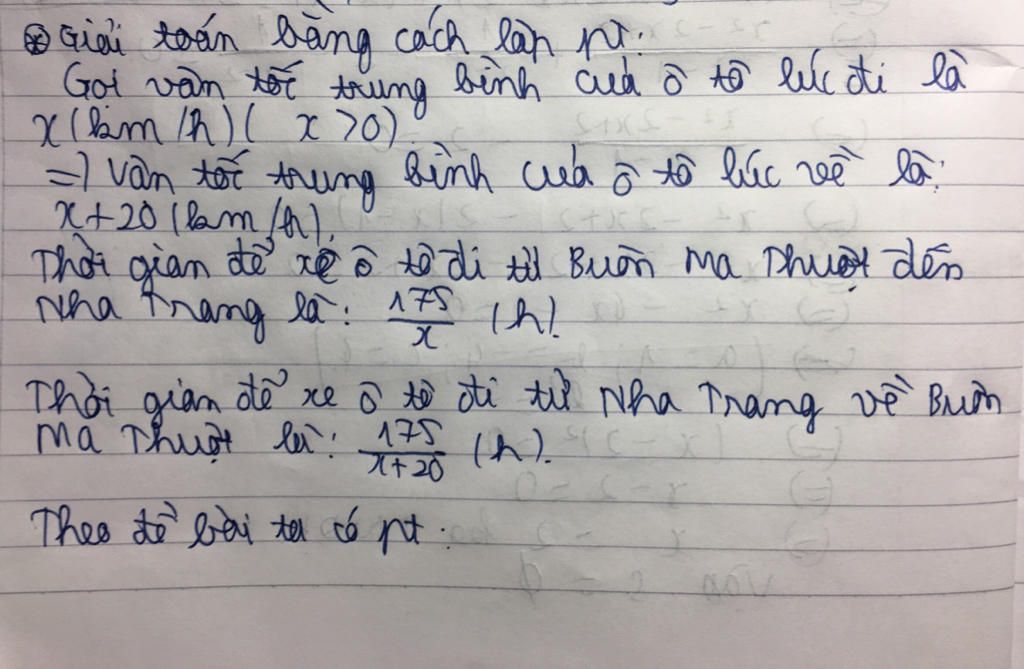 ⊛ Giải toán bằng cách lập pt:
Gọi vận tốc trung bình của ô tô lúc đi là
x (km/h) ( x > 0)
=) Vận tốc trung bình của ô tô lúc về là:
x+20 (km/h).
Thời gian để xe ô tô đi từ Buôn Ma Thuột đến
Nha Trang là: 175/x (h).
Thời gian để xe ô tô đi từ Nha Trang về Buôn
Ma Thuột là: 175/x+20 (h).
Theo đề bài ta có pt: